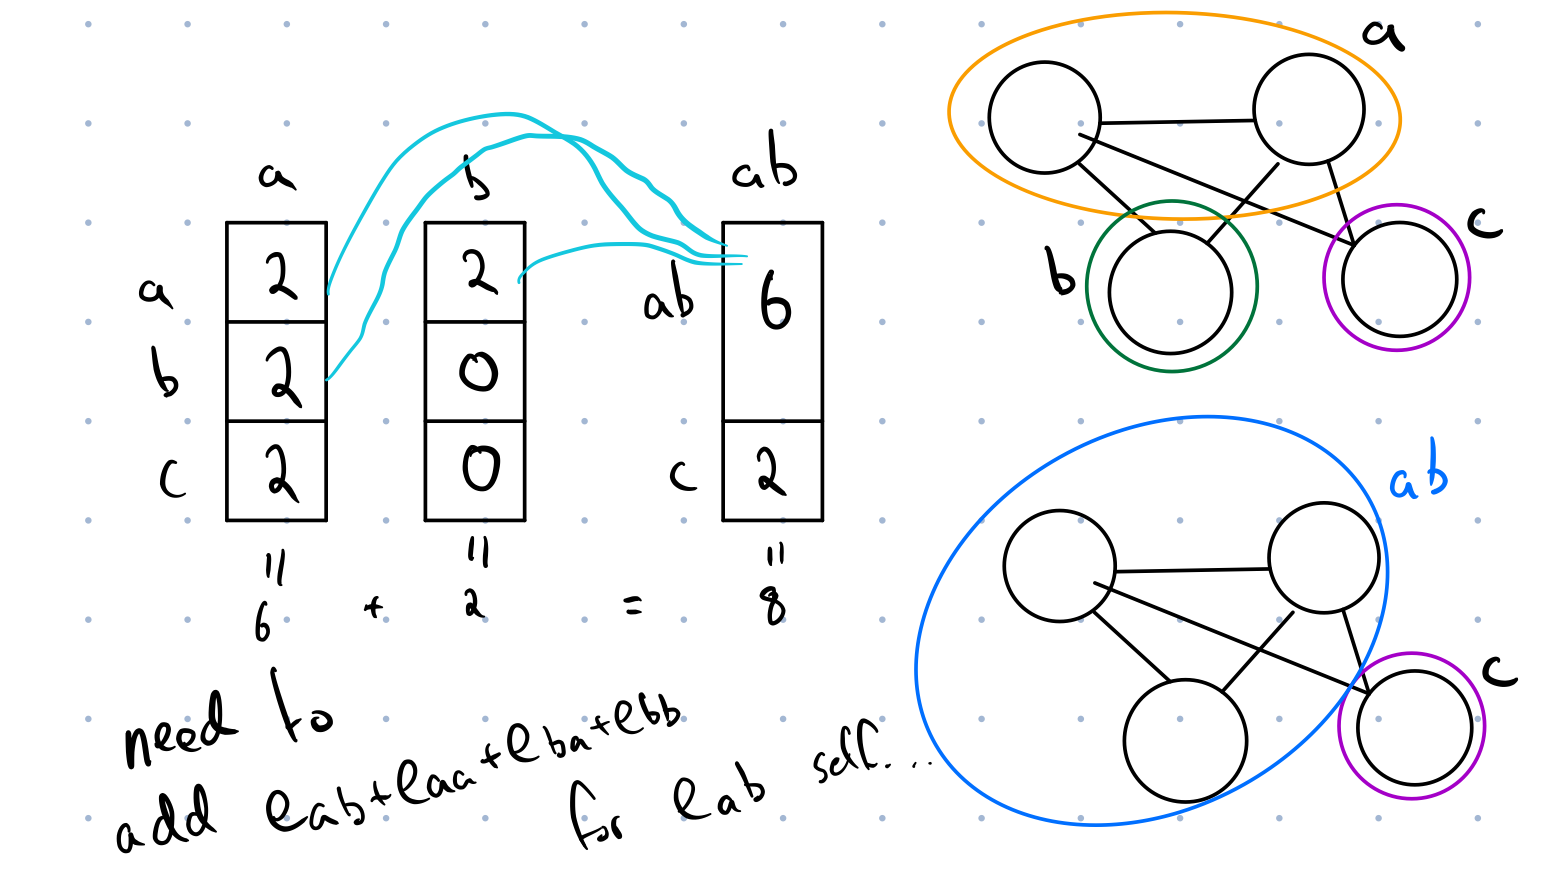 a b ab
a 2 2 ab 6
b 2 0
c 2 0 c 2
= = =
6 + 2 = 8
need to
add eab+eaa+eba+ebb
for eab self...
a
b
c
ab
c